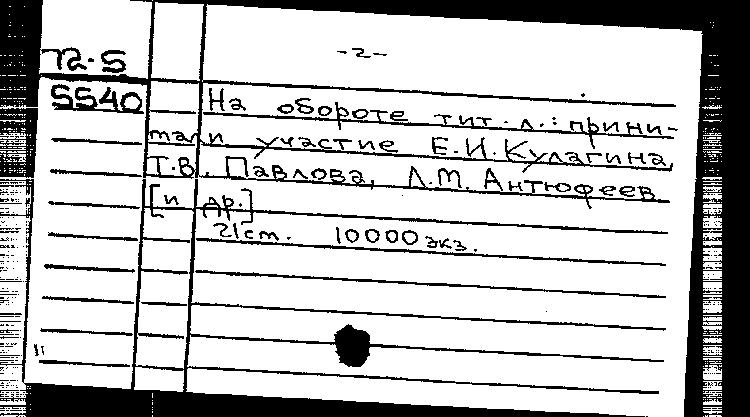 -2-
72-5
5540
На обороте тит. л.: прини-
мали участие Е.И.Кулагина,
Т.В. Павлова, Л.М. Антюфеев
[и др.]
21cm. 10000 экз.